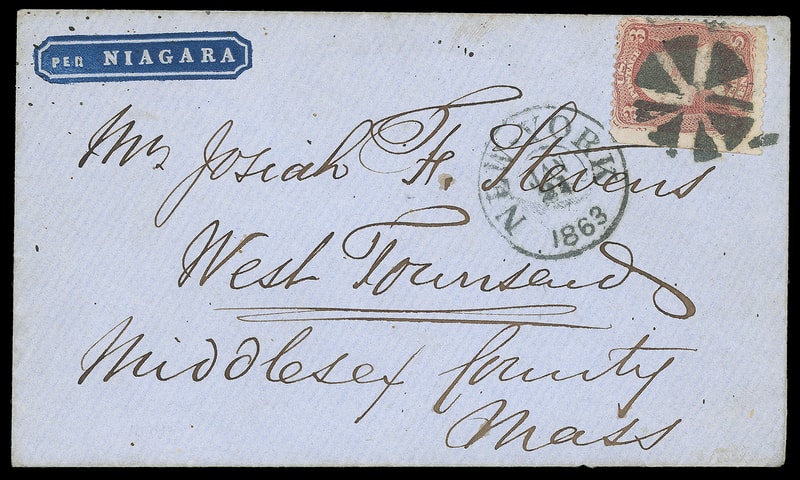 PER NIAGARA
Mrs Josiah H. Stevens
West Townsend
Middlesex County
Mass
NEW YORK
1863